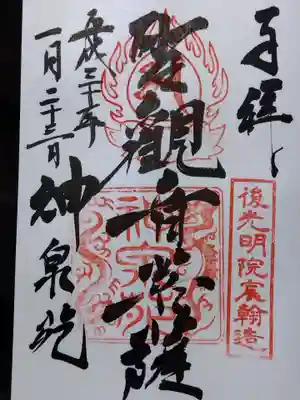 奉拝
後光明院宸翰造
聖觀音菩薩
平成三十年
一月二十三日
神泉苑